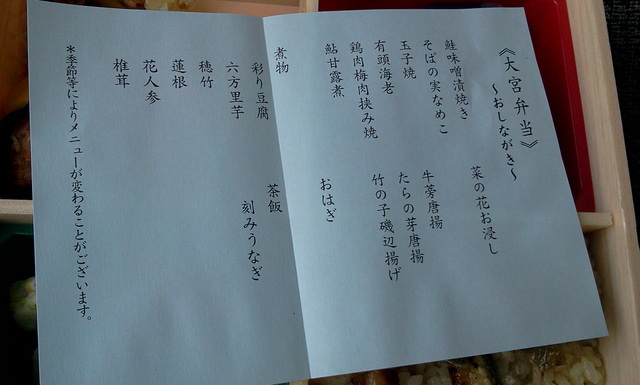 《大宮弁当》
～おしながき～
鮭味噌漬焼き
そばの実なめこ
玉子焼
有頭海老
鶏肉梅肉挟み焼
鮎甘露煮
菜の花お浸し
牛蒡唐揚
たらの芽唐揚
竹の子磯辺揚げ
おはぎ
煮物
彩り豆腐
六方里芋
穂竹
蓮根
花人参
椎茸
茶飯
刻みうなぎ
＊季節等によりメニューが変わることがございます。